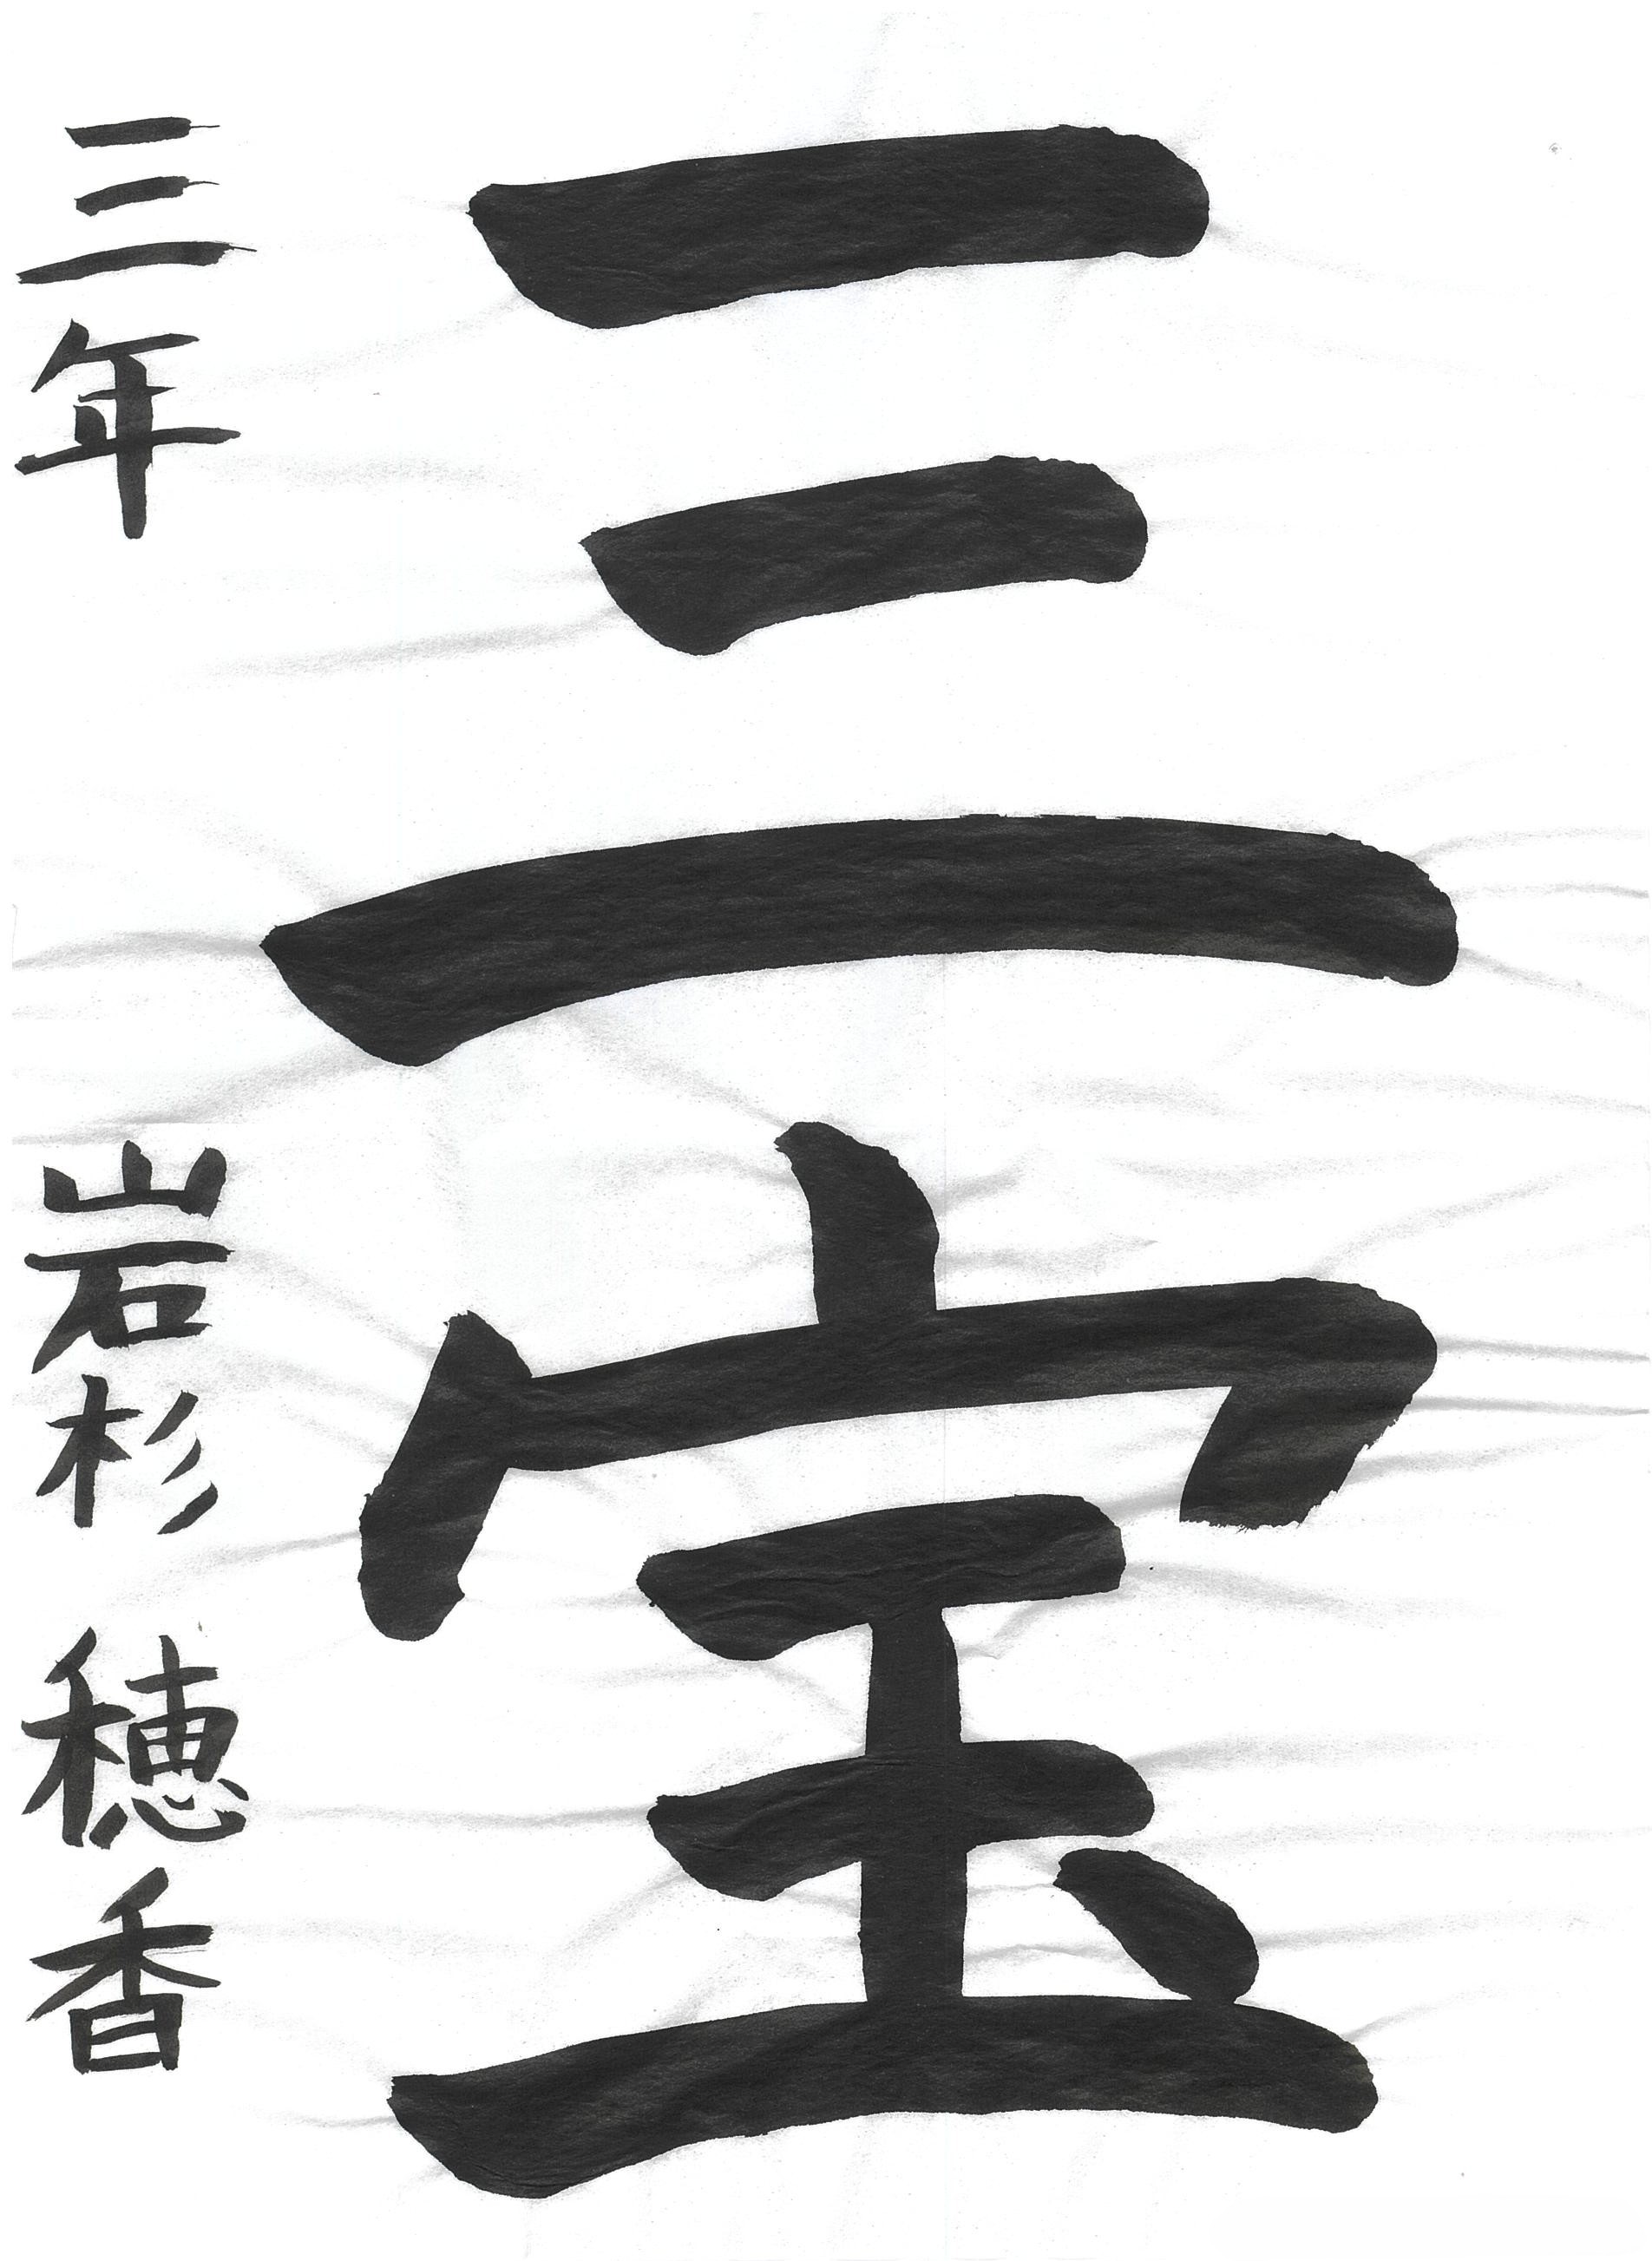 三宝
三年 岩杉 穂香